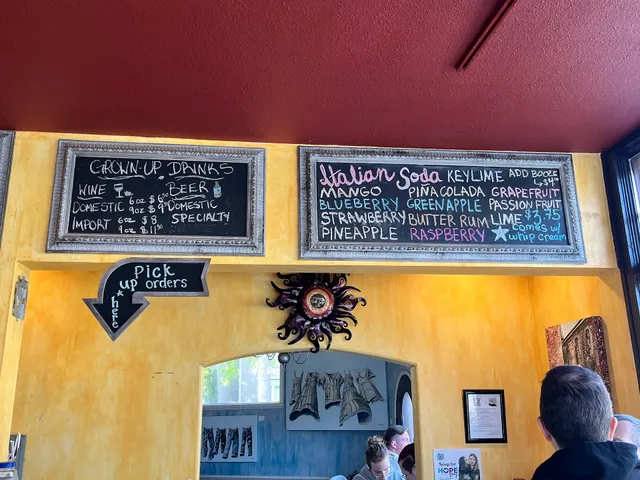 GROWN-UP DRINKS
WINE BEER
DOMESTIC 6oz $6 9oz $9 DOMESTIC
IMPORT 6oz $8 9oz $11.50 SPECIALTY
Italian Soda KEYLIME ADD BOOZE
MANGO PIÑA COLADA GRAPEFRUIT
BLUEBERRY GREEN APPLE PASSION FRUIT
STRAWBERRY BUTTER RUM LIME $3.75
PINEAPPLE RASPBERRY comes w/
whip cream
Pick
up orders
*here
Soup for
HOPE